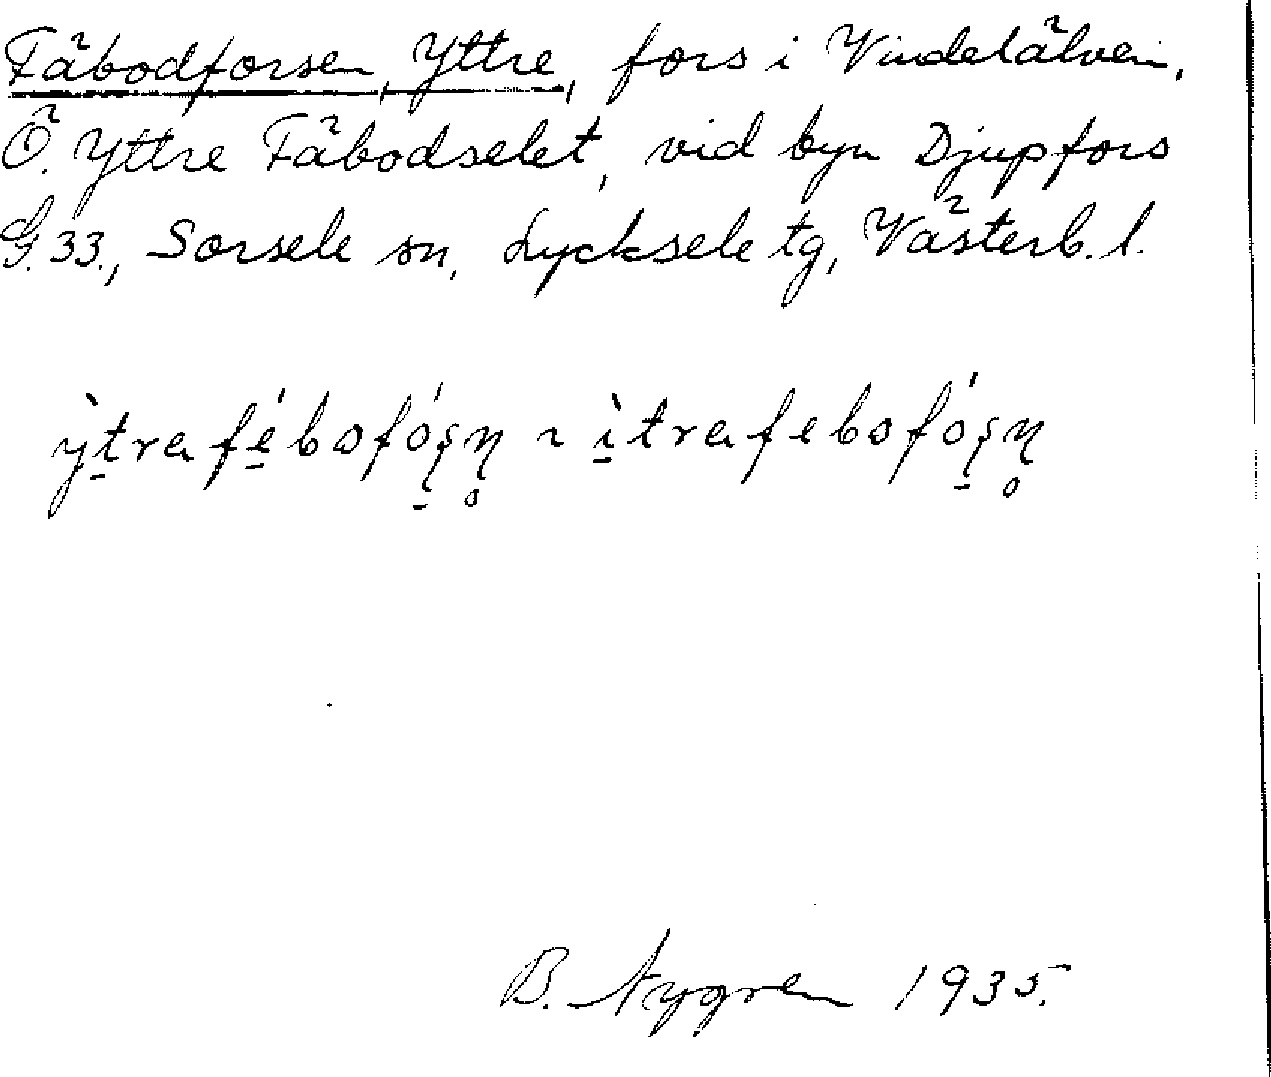 Fäbodforsen, Yttre, fors i Vindelälven,
Ö. Yttre Fäbodselet, vid byn Djupfors
G. 33., Sorsele sn, Lycksele tg, Västerb. l.
ỳt̠rafé̠bofó̠ʂɳ̥ ~ ì̠trafebofó̠ʂɳ̥
B. Nygren 1935.